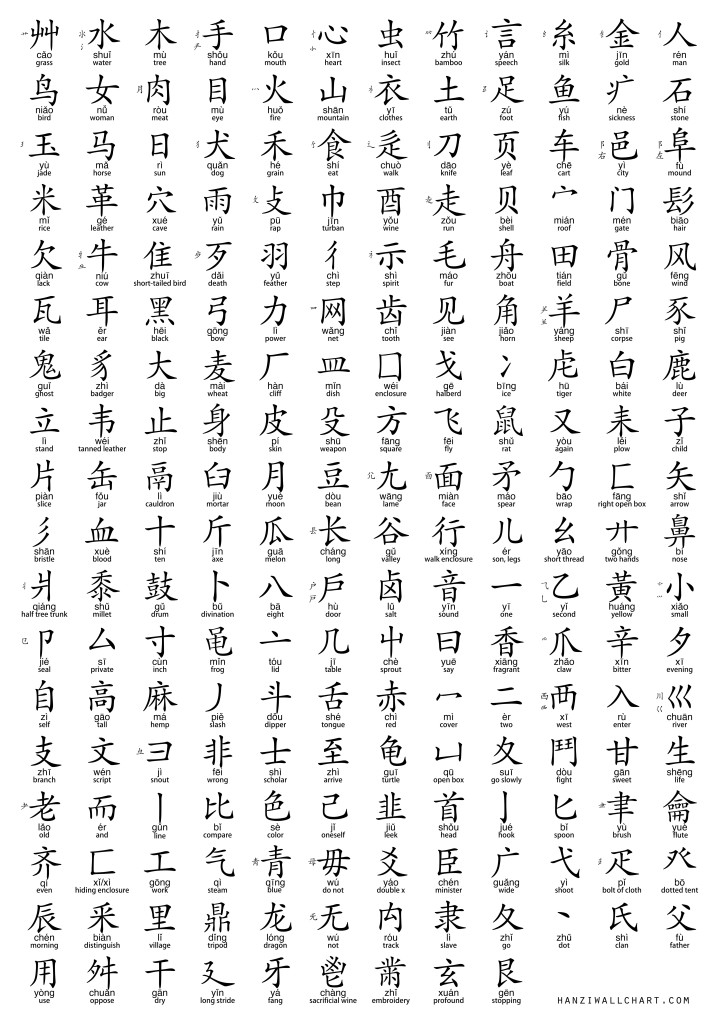 艸 水 木 手 口 心 虫 竹 言 糸 金 人
cǎo shuǐ mù shǒu kǒu xīn huǐ zhú yán mì jīn rén
grass water tree hand mouth heart insect bamboo speech silk gold man
鸟 女 肉 目 火 山 衣 土 足 鱼 疒 石
niǎo nǚ ròu mù huǒ shān yī tǔ zú yú nè shí
bird woman meat eye fire mountain clothes earth foot fish sickness stone
玉 马 日 犬 禾 食 辵 刀 页 车 邑 阜
yù mǎ rì quǎn hé shí chuò dāo yè chē yì fù
jade horse sun dog grain eat walk knife leaf cart city mound
米 革 穴 雨 攴 巾 酉 走 贝 宀 门 髟
mǐ gé xué yǔ pū jīn yǒu zǒu bèi mián mén biāo
rice leather cave rain rap turban wine run shell roof gate hair
欠 牛 隹 歹 羽 彳 示 毛 舟 田 骨 风
qiàn niú zhuī dǎi yǔ chì shì máo zhōu tián gǔ fēng
lack cow short-tailed bird death feather step spirit fur boat field bone wind
瓦 耳 黑 弓 力 网 齿 见 角 羊 尸 豕
wǎ ěr hēi gōng lì wǎng chǐ jiàn jiǎo yáng shī shǐ
tile ear black bow power net tooth see horn sheep corpse pig
鬼 豸 大 麦 厂 皿 囗 戈 冫 虍 白 鹿
guǐ zhì dà mài hàn mǐn wéi gē bīng hū bái lù
ghost badger big wheat cliff dish enclosure halberd ice tiger white deer
立 韦 止 身 皮 殳 方 飞 鼠 又 耒 子
lì wéi zhǐ shēn pí shū fāng fēi shǔ yòu lěi zǐ
stand tanned leather stop body skin weapon square fly rat again plow child
片 缶 鬲 臼 月 豆 尢 面 矛 勹 匚 矢
piàn fǒu lì jiù yuè dòu wāng miàn máo bāo fāng shǐ
slice jar cauldron mortar moon bean lame face spear wrap right open box arrow
彡 血 十 斤 瓜 长 谷 行 儿 幺 廾 鼻
shān xuè shí jīn guā cháng gǔ xíng ér yāo gǒng bí
bristle blood ten axe melon long valley walk enclosure son, legs short thread two hands nose
爿 黍 鼓 卜 八 戶 卤 音 一 乙 黃 小
qiáng shǔ gǔ bǔ bā hù lǔ yīn yī yǐ huáng xiǎo
half tree trunk millet drum divination eight door salt sound one second yellow small
卩 厶 寸 黾 亠 几 屮 曰 香 爪 辛 夕
jié sī cùn mǐn tóu jī chè yuē xiāng zhǎo xīn xī
seal private inch frog lid table sprout say fragrant claw bitter evening
自 高 麻 丿 斗 舌 赤 冖 二 襾 入 巛
zì gāo má piě dǒu shé chì mì èr xī rù chuān
self tall hemp slash dipper tongue red cover two west enter river
支 文 彐 非 士 至 龟 凵 夊 鬥 甘 生
zhī wén jì fēi shì zhì guī qǔ suī dòu gān shēng
branch script snout wrong scholar arrive turtle open box go slowly fight sweet life
老 而 丨 比 色 己 韭 首 亅 匕 聿 龠
lǎo ér gǔn bǐ sè jǐ jiǔ shǒu jué bǐ yù yuè
old and line compare color oneself leek head hook spoon brush flute
齐 匸 工 气 青 毋 爻 臣 广 弋 疋 癶
qí xǐ/xì gōng qì qīng wú yáo chén guǎng yì pǐ bō
even hiding enclosure work steam blue do not double x minister wide shoot bolt of cloth dotted tent
辰 釆 里 鼎 龙 无 禸 隶 夂 丶 氏 父
chén biàn lǐ dǐng lóng wú róu lì zhǐ zhǔ shì fù
morning distinguish village tripod dragon not track slave go dot clan father
用 舛 干 廴 牙 鬯 黹 玄 艮
yòng chuǎn gàn yǐn yá chàng zhǐ xuán gèn
use oppose dry long stride fang sacrificial wine embroidery profound stopping
HANZIWALLCHART.COM